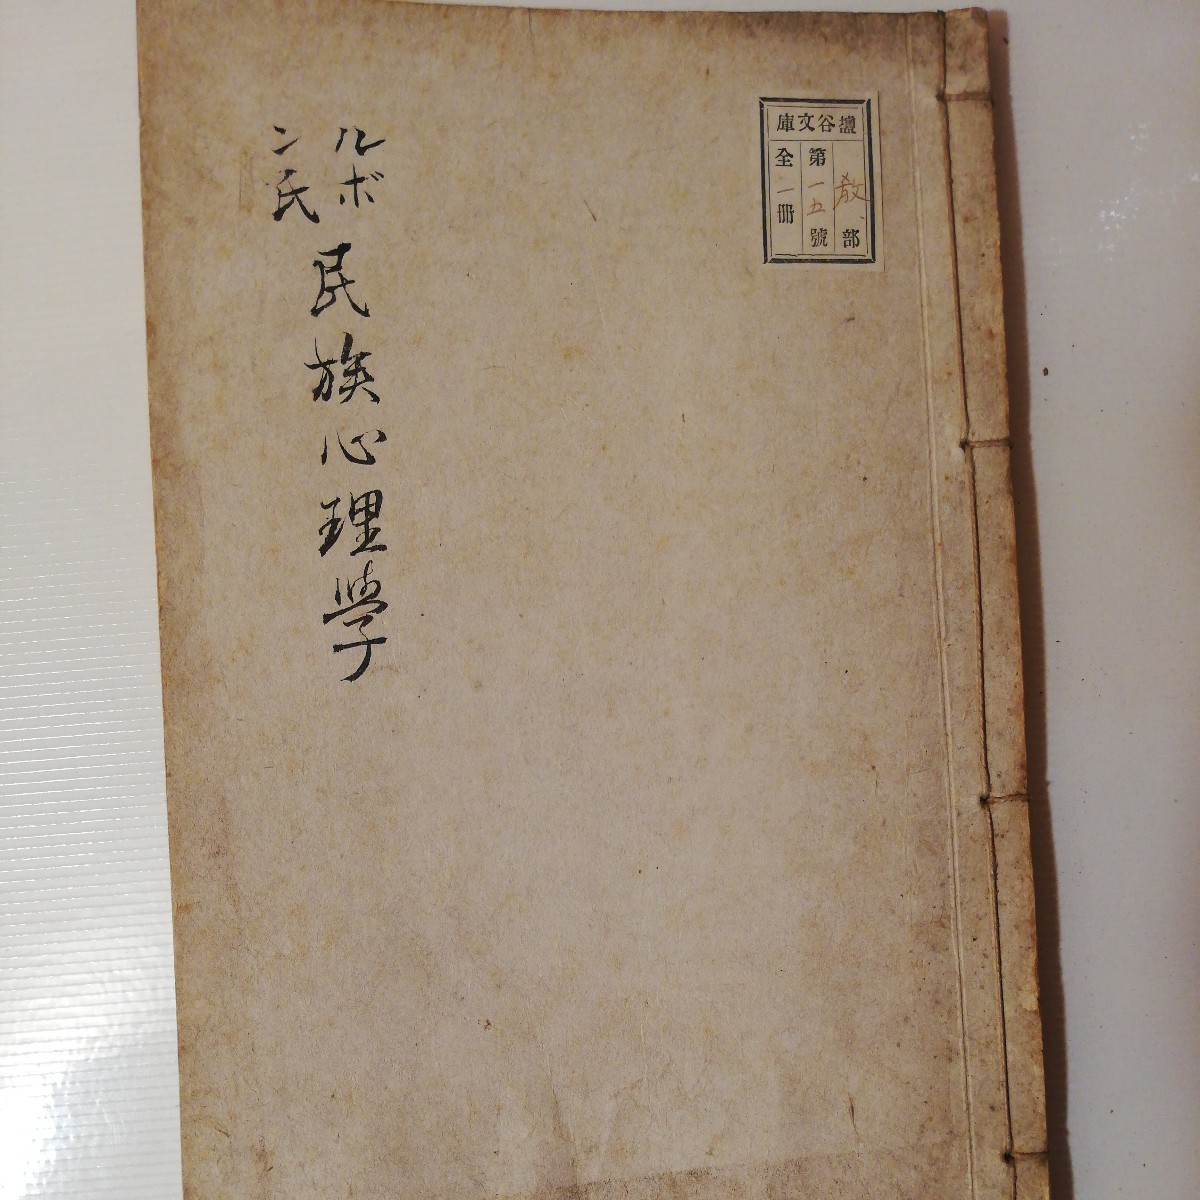 壇谷文庫
教部
第一五號
全一冊
ルボン氏
民族心理學